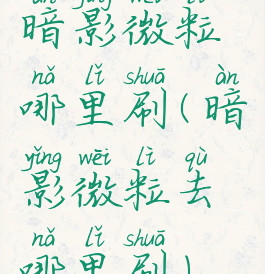 àn yǐng wēi lì
暗影微粒
nǎ lǐ shuā àn
哪里刷(暗
yǐng wēi lì qù
影微粒去
nǎ lǐ shuā
哪里刷)